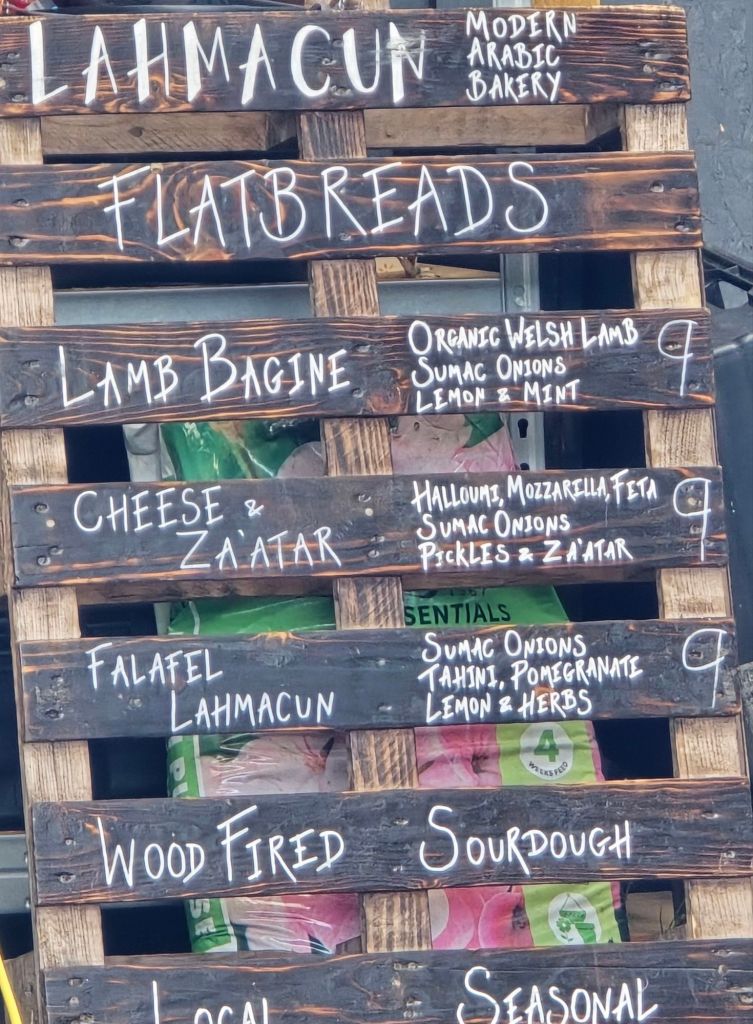 LAHMACUN
MODERN
ARABIC
BAKERY
FLATBREADS
LAMB BAGINE
ORGANIC WELSH LAMB
SUMAC ONIONS
LEMON & MINT
9
CHEESE &
ZA'ATAR
HALLOUMI, MOZZARELLA, FETA
SUMAC ONIONS
PICKLES & ZA'ATAR
9
SENTIALS
FALAFEL
LAHMACUN
SUMAC ONIONS
TAHINI, POMEGRANATE
LEMON & HERBS
9
4
WEEKS FEED
WOOD FIRED
SOURDOUGH
LOCAL
SEASONAL